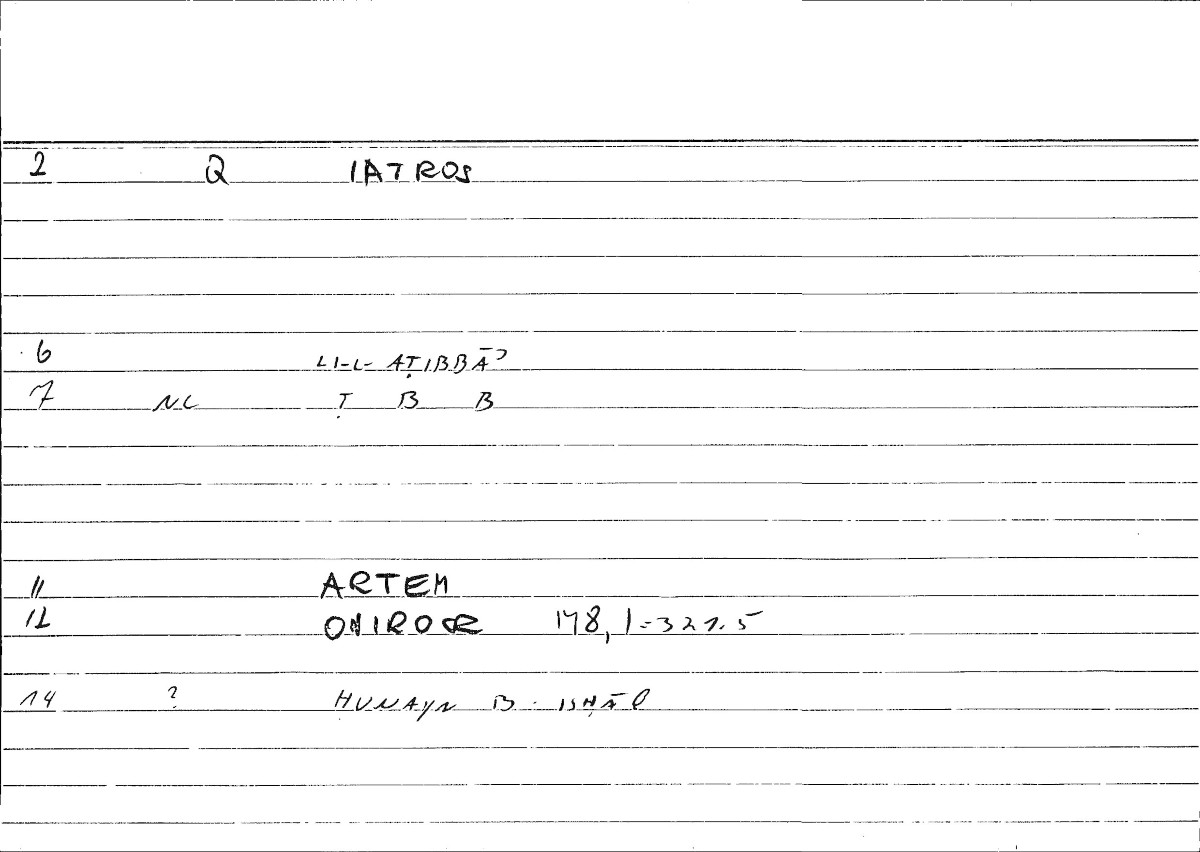 2 Q IATROS
6 LI-L-AṬIBBĀʾ
7 NC Ṭ B B
11 ARTEM
12 ONIROCR 178,1=321.5
14 ? ḤUNAYN B. ISḤĀQ